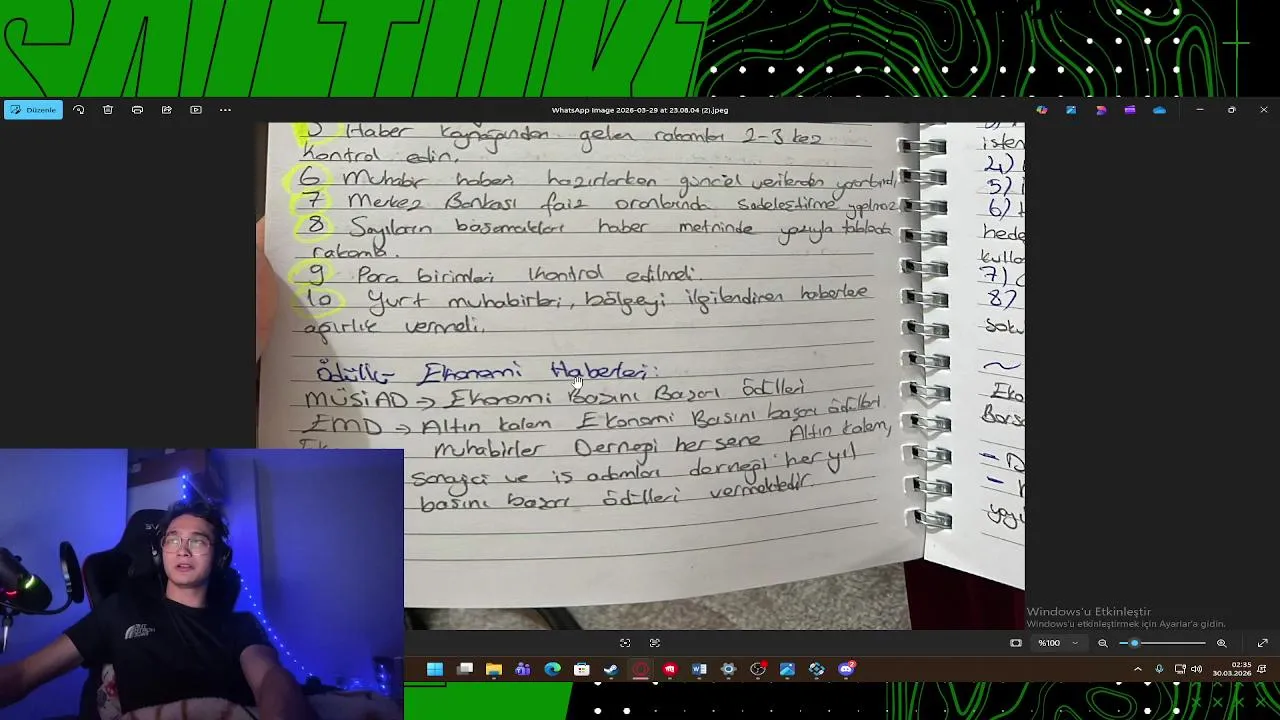 SALTUK
Düzenle
WhatsApp Image 2026-03-29 at 23.08.04 (2).jpeg
5 Haber kaynağından gelen rakamları 2-3 kez
kontrol edin.
6 Muhabir haberi hazırlarken güncel verilerden yararlandı
7 Merkez Bankası faiz oranlarında sadeleştirme yapılmaz
8 Sayıların basamakları haber metninde yazıyla tabloda
rakamla.
9 Para birimleri kontrol edilmeli.
10 Yurt muhabirleri, bölgeyi ilgilendiren haberlere
ağırlık vermeli.
Ödüllü Ekonomi Haberleri:
MÜSİAD → Ekonomi Basını Başarı Ödülleri
EMD → Altın kalem Ekonomi Basını başarı ödülleri
muhabirler Derneği her sene Altın kalem,
sanayici ve iş adamları derneği her yıl
basını başarı ödülleri vermektedir.
isten
4)
5) i
6)
hede
kulla
7)
8)
soku
~
Eko
Borsa
-
-
yayı
Windows'u Etkinleştir
Windows'u etkinleştirmek için Ayarlar'a gidin.
%100
THE NORTH FACE
02:35
30.03.2026